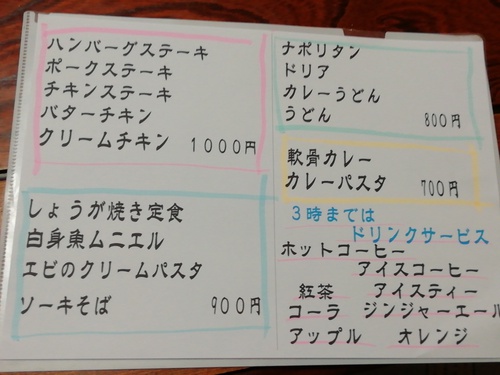 ハンバーグステーキ
ポークステーキ
チキンステーキ
バターチキン
クリームチキン 1000円
しょうが焼き定食
白身魚ムニエル
エビのクリームパスタ
ソーキそば 900円
ナポリタン
ドリア
カレーうどん
うどん 800円
軟骨カレー
カレーパスタ 700円
3時までは
ドリンクサービス
ホットコーヒー
アイスコーヒー
紅茶 アイスティー
コーラ ジンジャーエール
アップル オレンジ